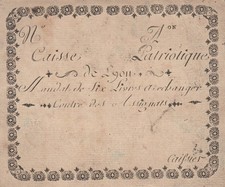 N A on
Caisse Patriotique
de Lyon
Mandat de Six Livres à echanger
Contre des Assignats
Caissier